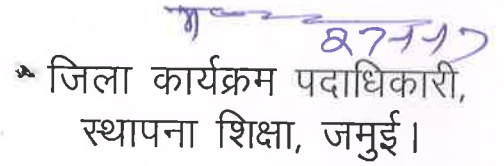 जिला कार्यक्रम पदाधिकारी,
स्थापना शिक्षा, जमुई।